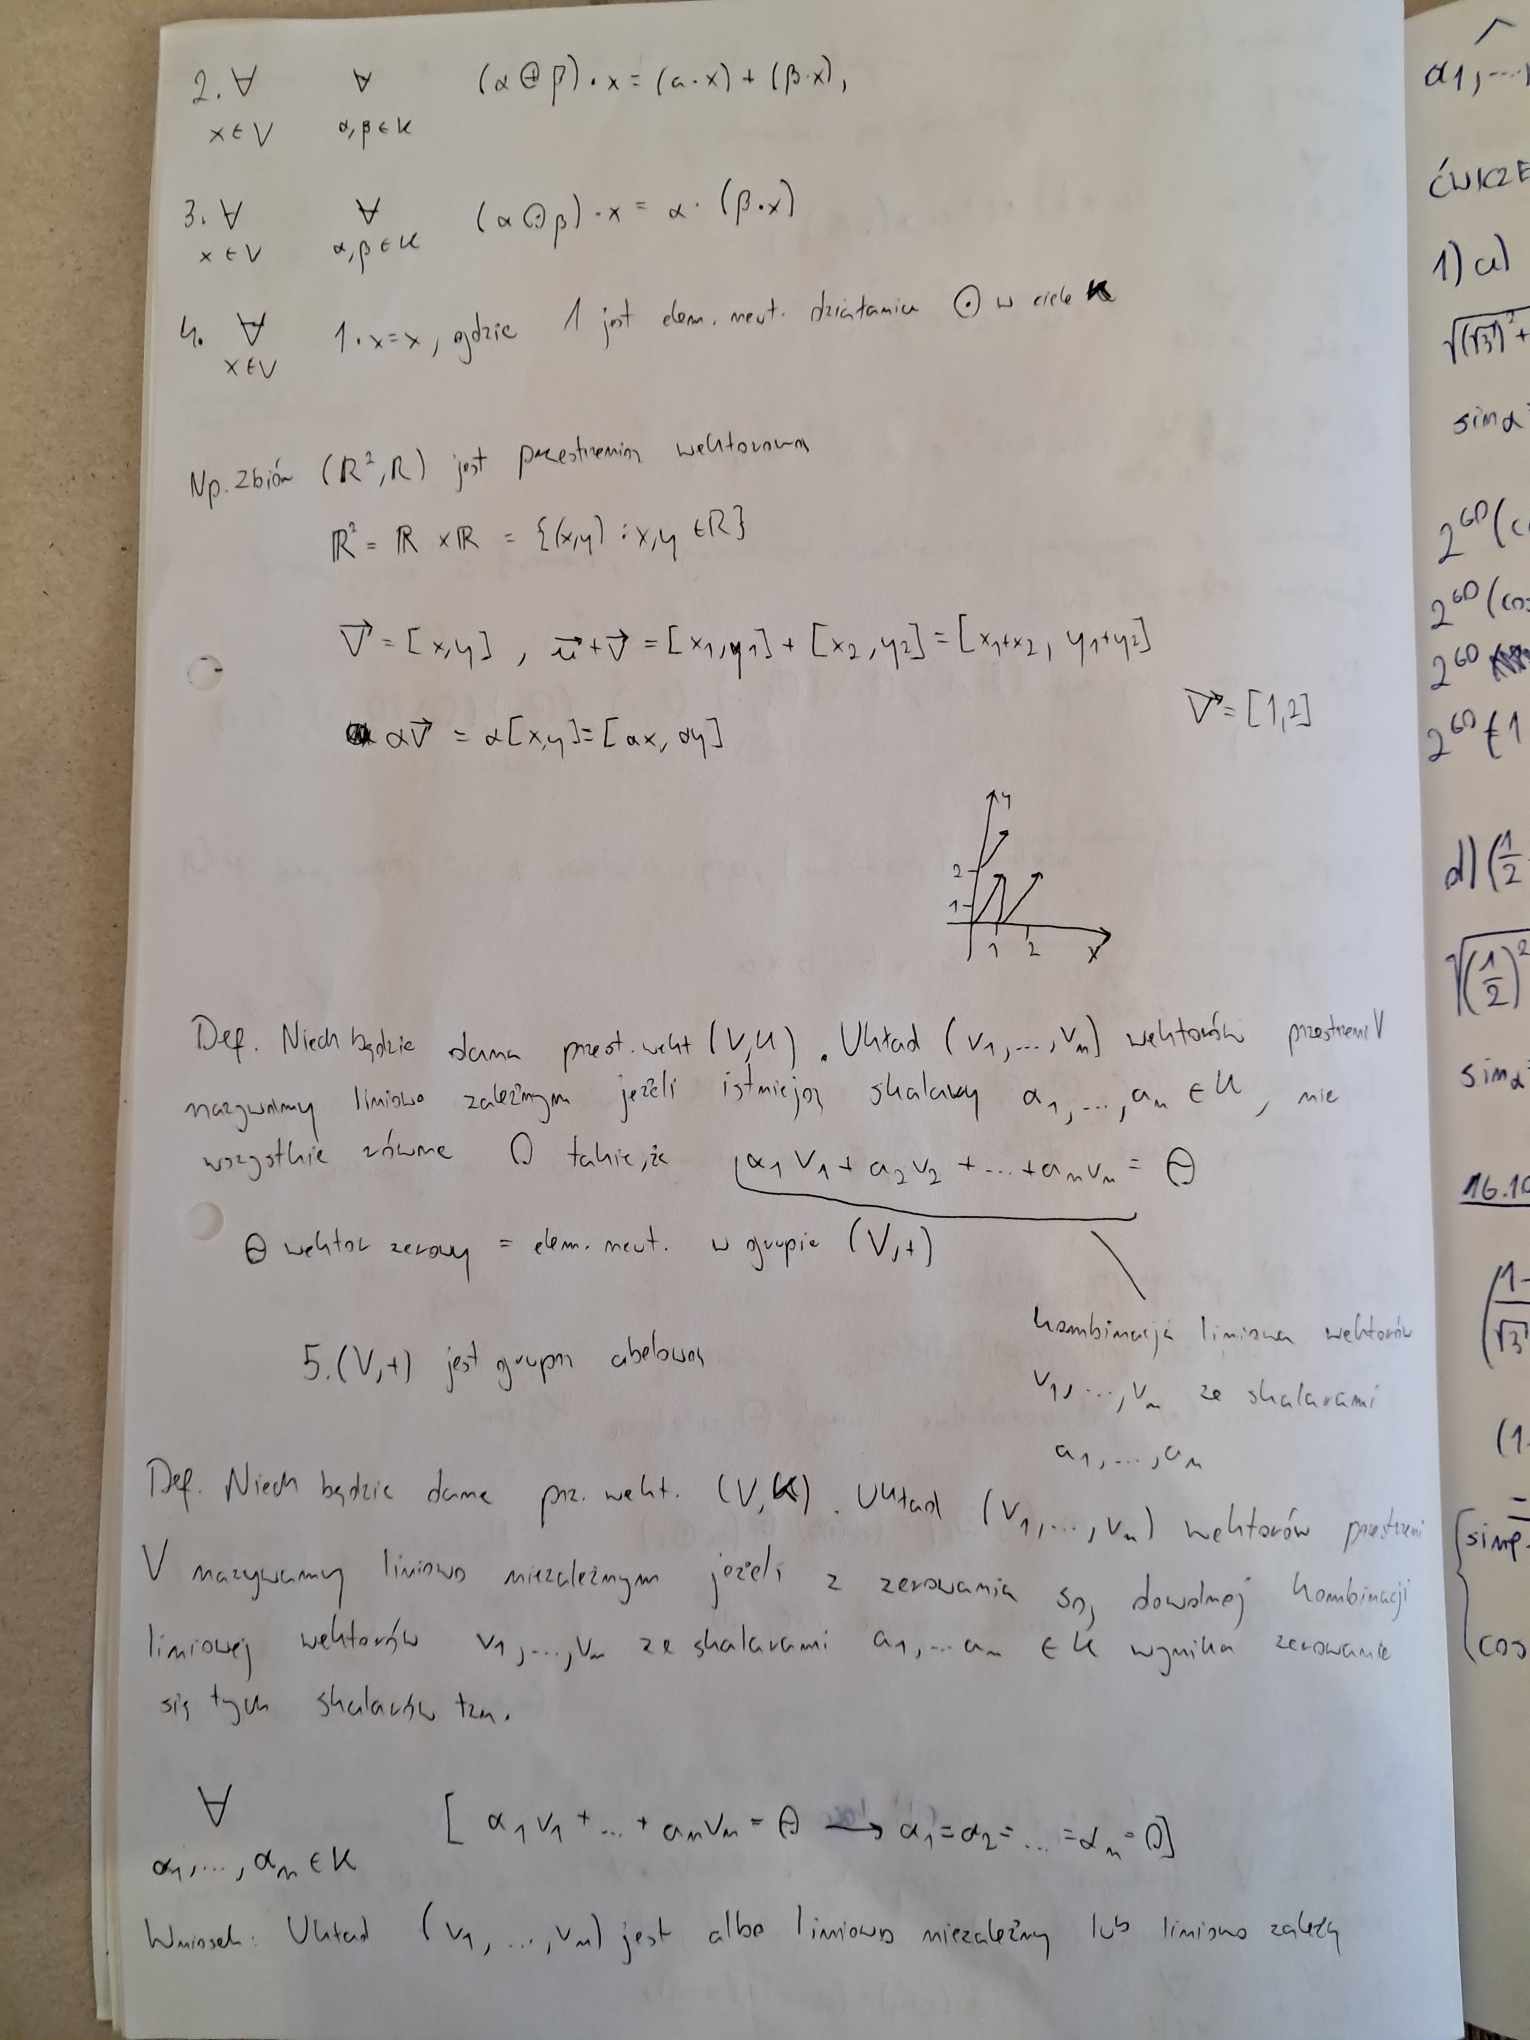 2. ∀ ∀ (α ⊕ β) · x = (a · x) + (β · x),
x ∈ V α, β ∈ K
3. ∀ ∀ (α ⊙ β) · x = α · (β · x)
x ∈ V α, β ∈ K
4. ∀ 1 · x = x, gdzie 1 jest elem. neut. działania ⊙ w ciele K
x ∈ V
Np. Zbiór (R², R) jest przestrzenią wektorową
R² = R × R = {(x,y) : x,y ∈ R}
V⃗ = [x,y] , u⃗ + V⃗ = [x₁,y₁] + [x₂,y₂] = [x₁+x₂, y₁+y₂]
V⃗ = [1,2]
αV⃗ = α[x,y] = [αx, αy]
y
2
1
1 2 x
Def. Niech będzie dana przest. wekt (V,K). Układ (v₁,...,vₙ) wektorów przestrzeni V
nazywamy liniowo zależnym jeżeli istnieją skalary α₁,...,aₙ ∈ K, nie
wszystkie równe 0 takie, że α₁v₁ + a₂v₂ + ... + aₙvₙ = Θ
Θ wektor zerowy = elem. neut. w grupie (V,+)
kombinacja liniowa wektorów
v₁,...,vₙ ze skalarami
a₁,...,aₙ
5. (V,+) jest grupą abelową
Def. Niech będzie dane prz. wekt. (V,K). Układ (v₁,...,vₙ) wektorów przestrzeni
V nazywamy liniowo niezależnym jeżeli z zerowania są, dowolnej kombinacji
liniowej wektorów v₁,...,vₙ ze skalarami a₁,...aₙ ∈ K wynika zerowanie
się tych skalarów tzn.
∀ [α₁v₁ + ... + aₙvₙ = Θ → α₁ = α₂ = ... = αₙ = 0]
α₁,...,αₙ ∈ K
Wniosek: Układ (v₁,...,vₙ) jest albo liniowo niezależny lub liniowo zależy
α1,...,
1) a)
sinα
2⁶⁰(
2⁶⁰(cos
2⁶⁰
2⁶⁰(-1
d) (1/2
√(1/2)²
sinα
16.10
(1-
√3
(1-
sinφ
cos